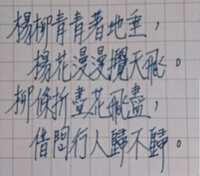 楊柳青青著地垂，
楊花漫漫攪天飛。
柳條折盡花飛盡，
借問行人歸不歸。